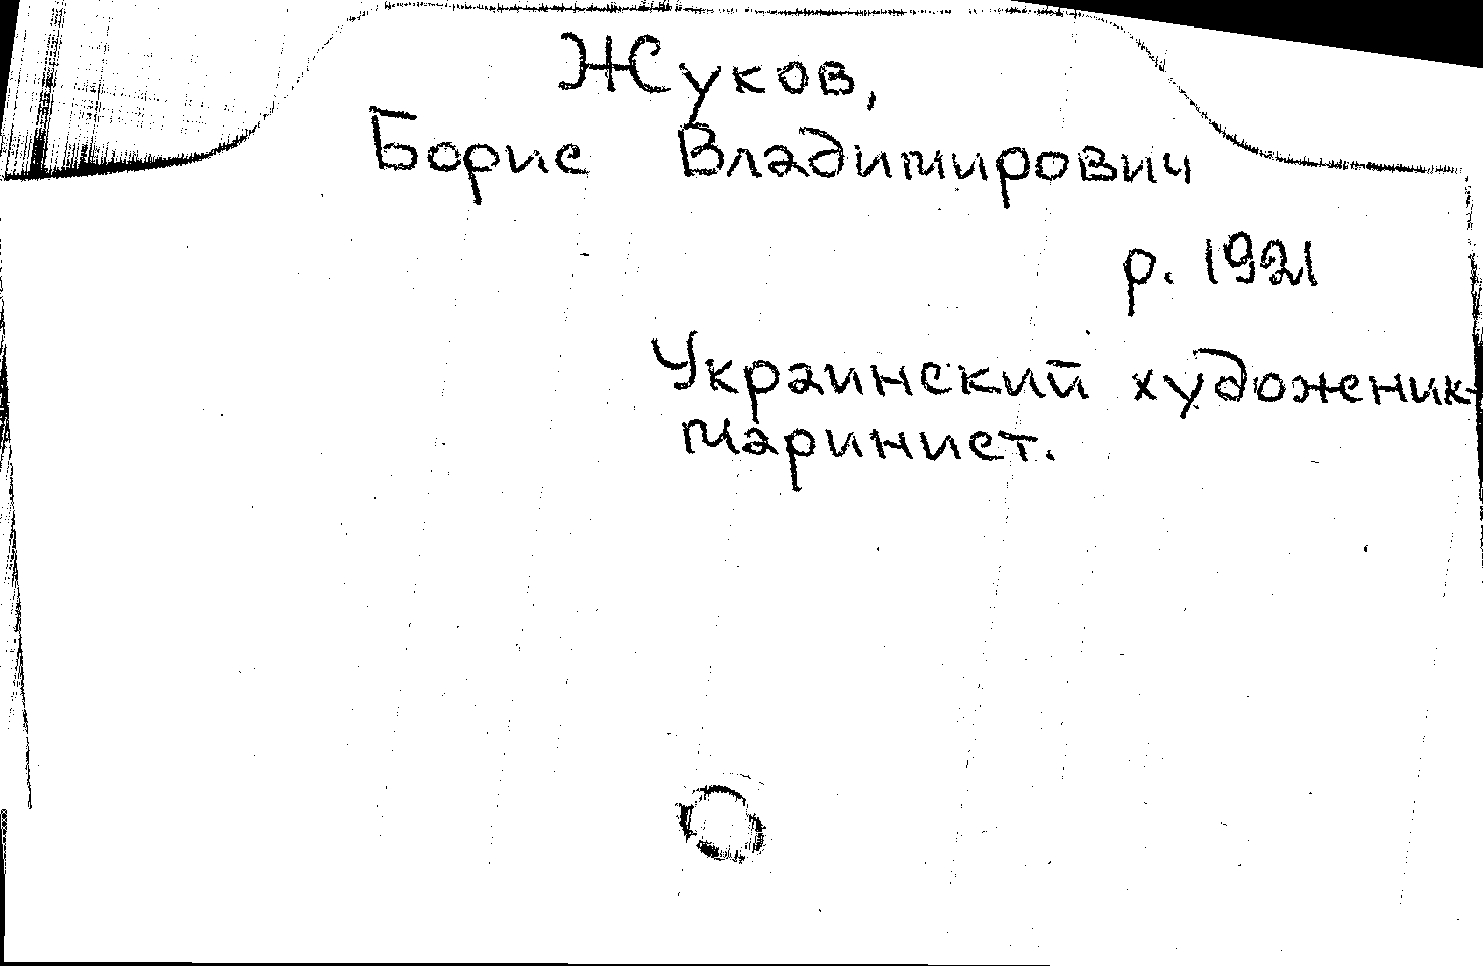 Жуков,
Борис Владимирович
р. 1921
Украинский художник-
маринист.